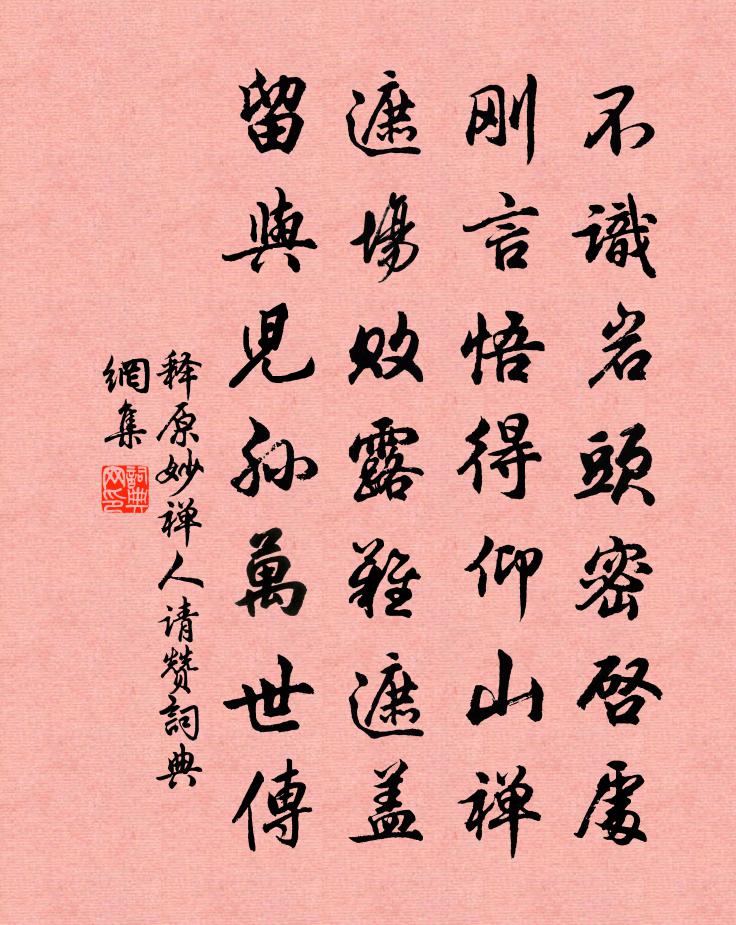 不識岩頭密啓處
刚言悟得仰山禅
遮場敗露難遮盖
留與児孙萬世傳
释原妙禅人请赞詞典
網集
詞典
网印